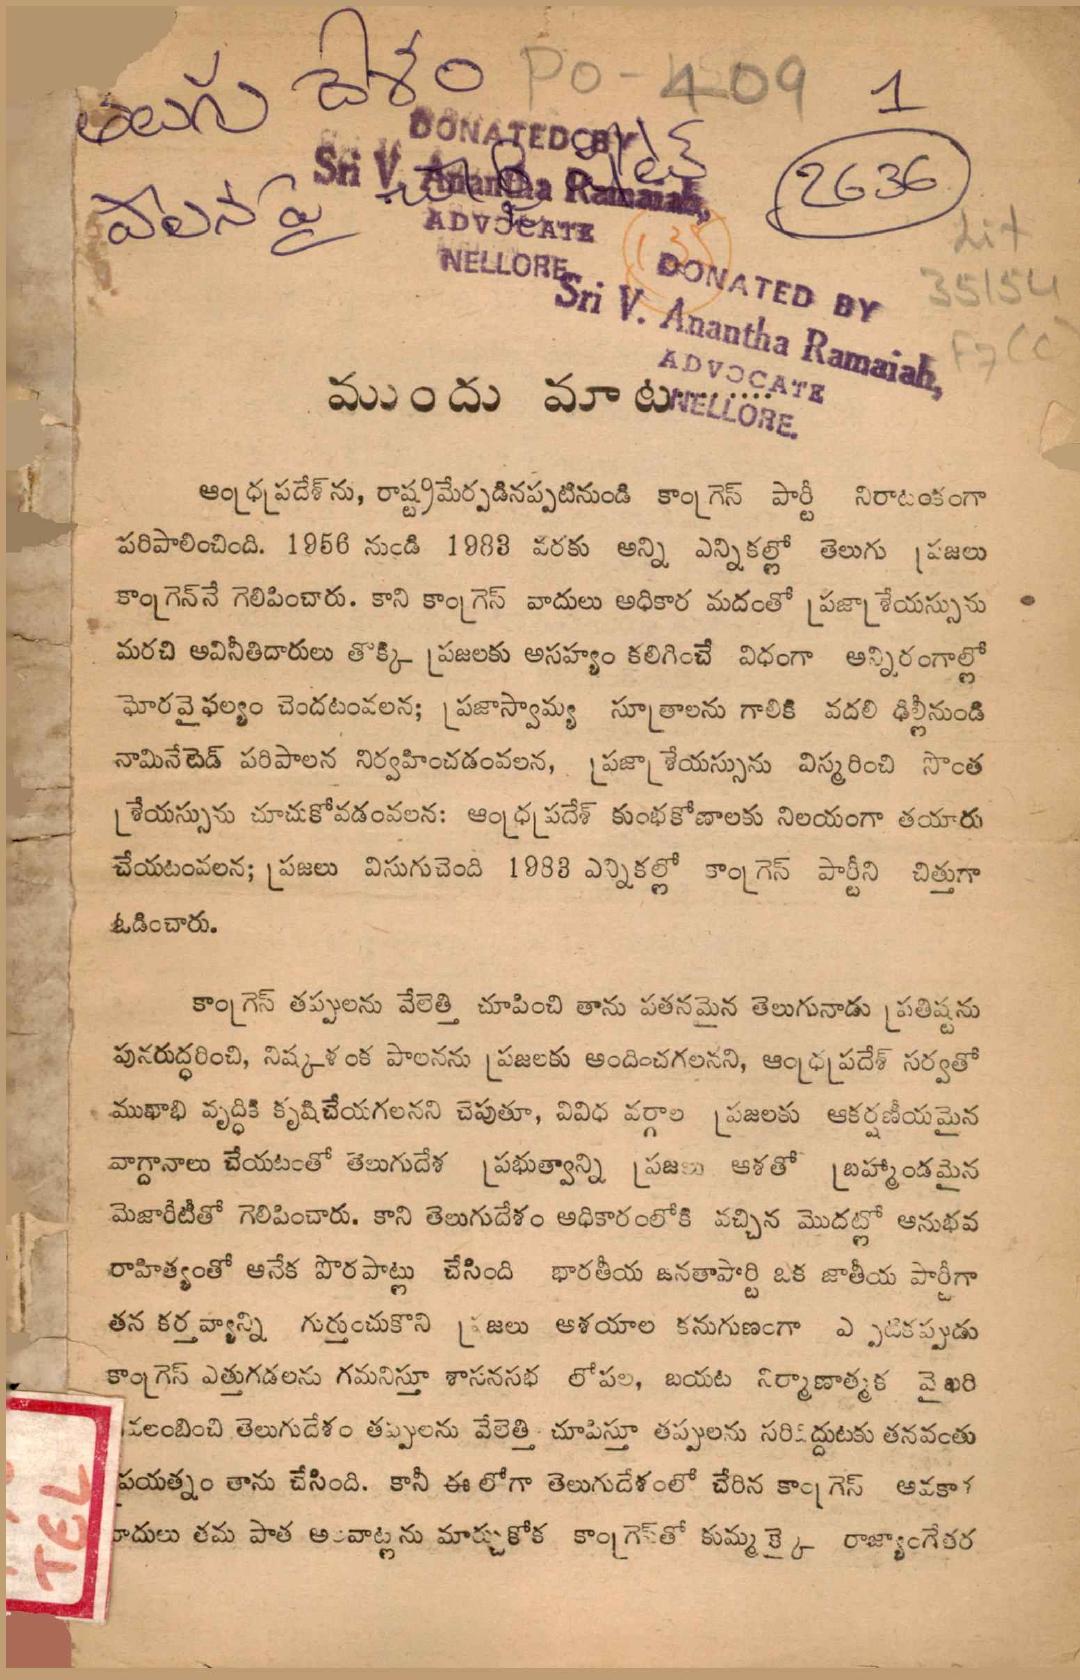 తెలుగు దేశం PO-409 1
DONATED BY
Sri V. Anantha Ramaiah,
ADVOCATE
NELLORE
పాలనపై చార్జి షీట్
2636
135
Lit
35154
F7 (C)
DONATED BY
Sri V. Anantha Ramaiah,
ADVOCATE
NELLORE.
ముందు మాట.......
ఆంధ్రప్రదేశ్‌ను, రాష్ట్రమేర్పడినప్పటినుండి కాంగ్రెస్ పార్టీ నిరాటంకంగా
పరిపాలించింది. 1956 నుండి 1983 వరకు అన్ని ఎన్నికల్లో తెలుగు ప్రజలు
కాంగ్రెస్‌నే గెలిపించారు. కాని కాంగ్రెస్ వాదులు అధికార మదంతో ప్రజాశ్రేయస్సును
మరచి అవినీతిదారులు తొక్కి ప్రజలకు అసహ్యం కలిగించే విధంగా అన్నిరంగాల్లో
ఘోరవైఫల్యం చెందటంవలన; ప్రజాస్వామ్య సూత్రాలను గాలికి వదలి ఢిల్లీనుండి
నామినేటెడ్ పరిపాలన నిర్వహించడంవలన, ప్రజాశ్రేయస్సును విస్మరించి సొంత
శ్రేయస్సును చూచుకోవడంవలన: ఆంధ్రప్రదేశ్ కుంభకోణాలకు నిలయంగా తయారు
చేయటంవలన; ప్రజలు విసుగుచెంది 1983 ఎన్నికల్లో కాంగ్రెస్ పార్టీని చిత్తుగా
ఓడించారు.
కాంగ్రెస్ తప్పులను వేలెత్తి చూపించి తాను పతనమైన తెలుగునాడు ప్రతిష్టను
పునరుద్ధరించి, నిష్కళంక పాలనను ప్రజలకు అందించగలనని, ఆంధ్రప్రదేశ్ సర్వతో
ముఖాభి వృద్ధికి కృషిచేయగలనని చెపుతూ, వివిధ వర్గాల ప్రజలకు ఆకర్షణీయమైన
వాగ్దానాలు చేయటంతో తెలుగుదేశ ప్రభుత్వాన్ని ప్రజలు ఆశతో బ్రహ్మాండమైన
మెజారీటీతో గెలిపించారు. కాని తెలుగుదేశం అధికారంలోకి వచ్చిన మొదట్లో అనుభవ
రాహిత్యంతో అనేక పొరపాట్లు చేసింది భారతీయ జనతాపార్టి ఒక జాతీయ పార్టీగా
తన కర్తవ్యాన్ని గుర్తుంచుకొని ప్రజలు ఆశయాల కనుగుణంగా ఎప్పటికప్పుడు
కాంగ్రెస్ ఎత్తుగడలను గమనిస్తూ శాసనసభ లోపల, బయట నిర్మాణాత్మక వైఖరి
వలంబించి తెలుగుదేశం తప్పులను వేలెత్తి చూపిస్తూ తప్పులను సరిదిద్దుటకు తనవంతు
ప్రయత్నం తాను చేసింది. కానీ ఈ లోగా తెలుగుదేశంలో చేరిన కాంగ్రెస్ అవకాశ
వాదులు తమ పాత అలవాట్లను మార్చుకోక కాంగ్రెస్‌తో కుమ్మక్కై రాజ్యాంగేతర
TEL